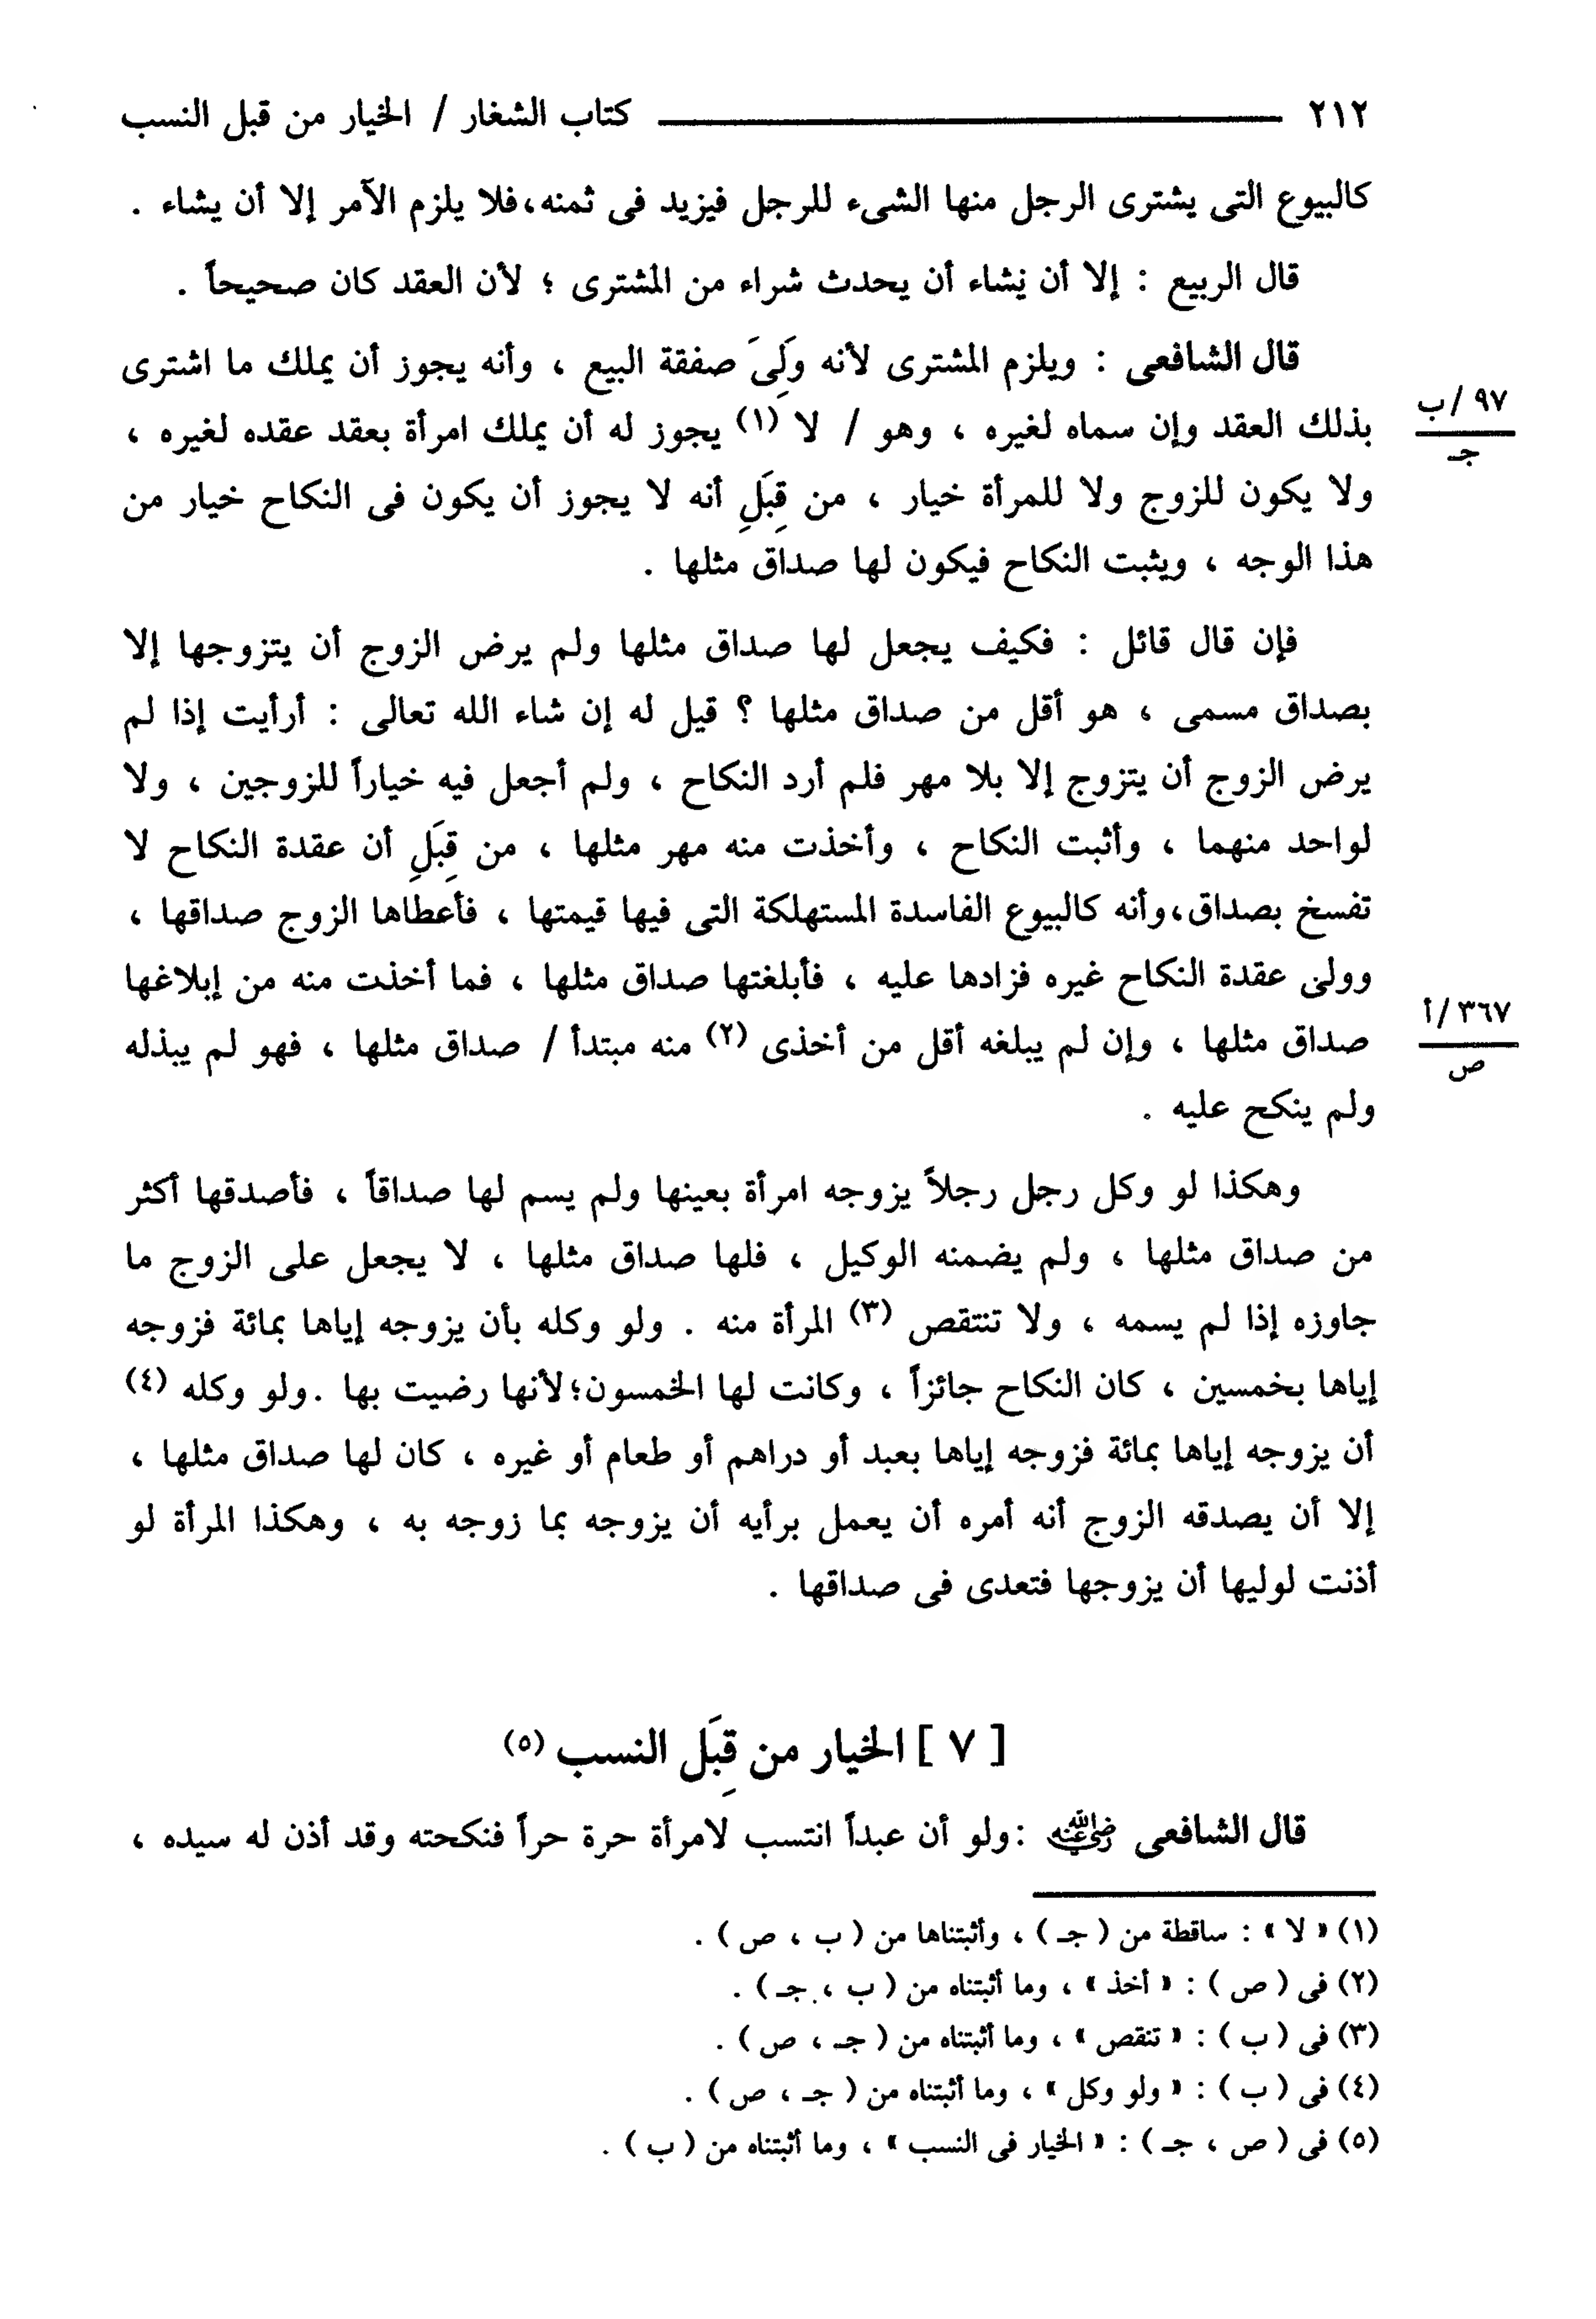 ٢١٢ كتاب الشغار / الخيار من قبل النسب
كالبيوع التى يشترى الرجل منها الشىء للرجل فيزيد فى ثمنه،فلا يلزم الآمر إلا أن يشاء .
قال الربيع : إلا أن يَشاء أن يحدث شراء من المشترى ؛ لأن العقد كان صحيحاً .
قال الشافعى : ويلزم المشترى لأنه وَلِىَ صفقة البيع ، وأنه يجوز أن يملك ما اشترى
٩٧ /ب
جـ
بذلك العقد وإن سماه لغيره ، وهو / لا (١) يجوز له أن يملك امرأة بعقد عقده لغيره ،
ولا يكون للزوج ولا للمرأة خيار ، من قِبَلِ أنه لا يجوز أن يكون فى النكاح خيار من
هذا الوجه ، ويثبت النكاح فيكون لها صداق مثلها .
فإن قال قائل : فكيف يجعل لها صداق مثلها ولم يرض الزوج أن يتزوجها إلا
بصداق مسمى ، هو أقل من صداق مثلها ؟ قيل له إن شاء الله تعالى : أرأيت إذا لم
يرض الزوج أن يتزوج إلا بلا مهر فلم أرد النكاح ، ولم أجعل فيه خياراً للزوجين ، ولا
لواحد منهما ، وأثبت النكاح ، وأخذت منه مهر مثلها ، من قِبَلِ أن عقدة النكاح لا
تفسخ بصداق،وأنه كالبيوع الفاسدة المستهلكة التى فيها قيمتها ، فأعطاها الزوج صداقها ،
وولى عقدة النكاح غيره فزادها عليه ، فأبلغتها صداق مثلها ، فما أخذت منه من إبلاغها
٣٦٧/أ
ص
صداق مثلها ، وإن لم يبلغه أقل من أخذى (٢) منه مبتدأ / صداق مثلها ، فهو لم يبذله
ولم ينكح عليه .
وهكذا لو وكل رجل رجلاً يزوجه امرأة بعينها ولم يسم لها صداقاً ، فأصدقها أكثر
من صداق مثلها ، ولم يضمنه الوكيل ، فلها صداق مثلها ، لا يجعل على الزوج ما
جاوزه إذا لم يسمه ، ولا تنتقص (٣) المرأة منه . ولو وكله بأن يزوجه إياها بمائة فزوجه
إياها بخمسين ، كان النكاح جائزاً ، وكانت لها الخمسون؛لأنها رضيت بها .ولو وكله (٤)
أن يزوجه إياها بمائة فزوجه إياها بعبد أو دراهم أو طعام أو غيره ، كان لها صداق مثلها ،
إلا أن يصدقه الزوج أنه أمره أن يعمل برأيه أن يزوجه بما زوجه به ، وهكذا المرأة لو
أذنت لوليها أن يزوجها فتعدى فى صداقها .
[ ٧ ] الخيار من قِبَل النسب (٥)
قال الشافعى رضي الله عنه :ولو أن عبداً انتسب لامرأة حرة حراً فنكحته وقد أذن له سيده ،
(١) « لا » : ساقطة من ( جـ ) ، وأثبتناها من ( ب ، ص ) .
(٢) فى ( ص ) : « أخذ » ، وما أثبتناه من ( ب ، جـ ) .
(٣) فى ( ب ) : « تنقص » ، وما أثبتناه من ( جـ ، ص ) .
(٤) فى ( ب ) : « ولو وكل » ، وما أثبتناه من ( جـ ، ص ) .
(٥) فى ( ص ، جـ ) : « الخيار فى النسب » ، وما أثبتناه من ( ب ) .